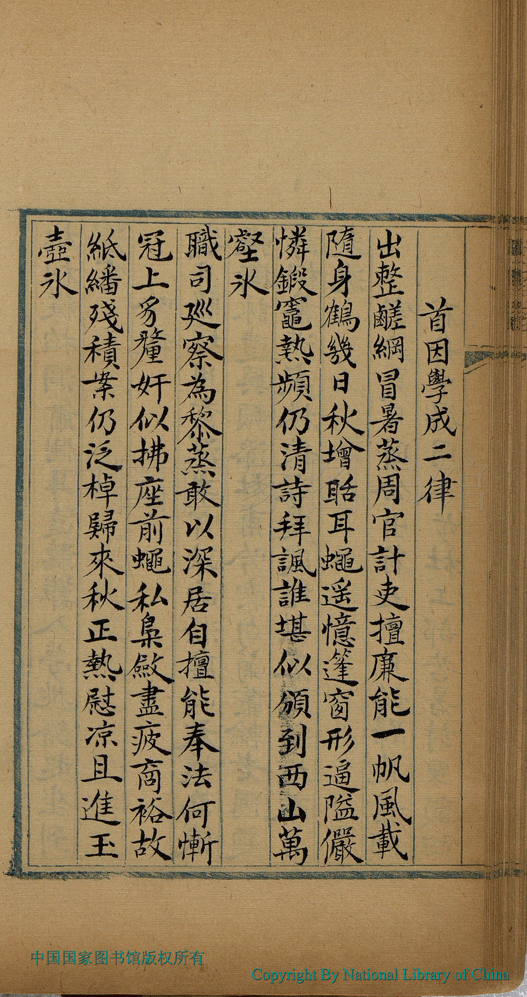 首因學成二律
出整鹺綱冒暑蒸周官計吏擅廉能一帆風載
隨身鶴幾日秋增聒耳蠅遥憶篷窗形逼隘儼
憐鍛竈熱頻仍清詩拜諷誰堪似頒到西山萬
壑氷
職司廵察為黎蒸敢以深居自擅能奉法何慚
冠上豸釐奸似拂座前蠅私梟斂盡疲商裕故
紙繙殘積案仍泛棹歸來秋正熱慰凉且進玉
壺氷
中国国家图书馆版权所有
Copyright By National Library of China